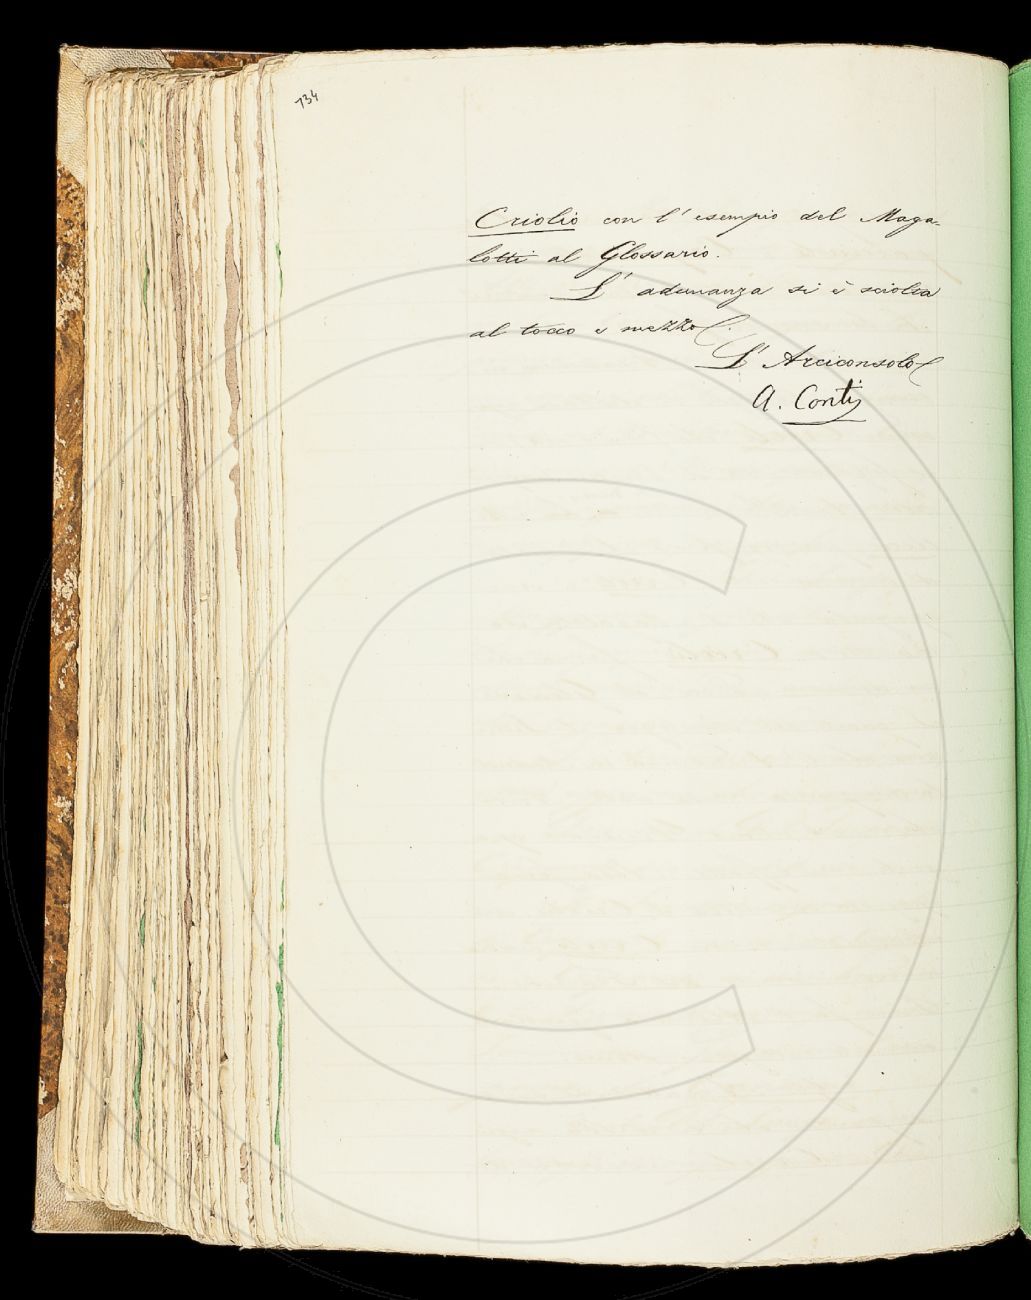 734
Criolio con l'esempio del Maga-
lotti al Glossario.
L'adunanza si è sciolta
al tocco e mezzo.
L'Arciconsolo
A. Conti